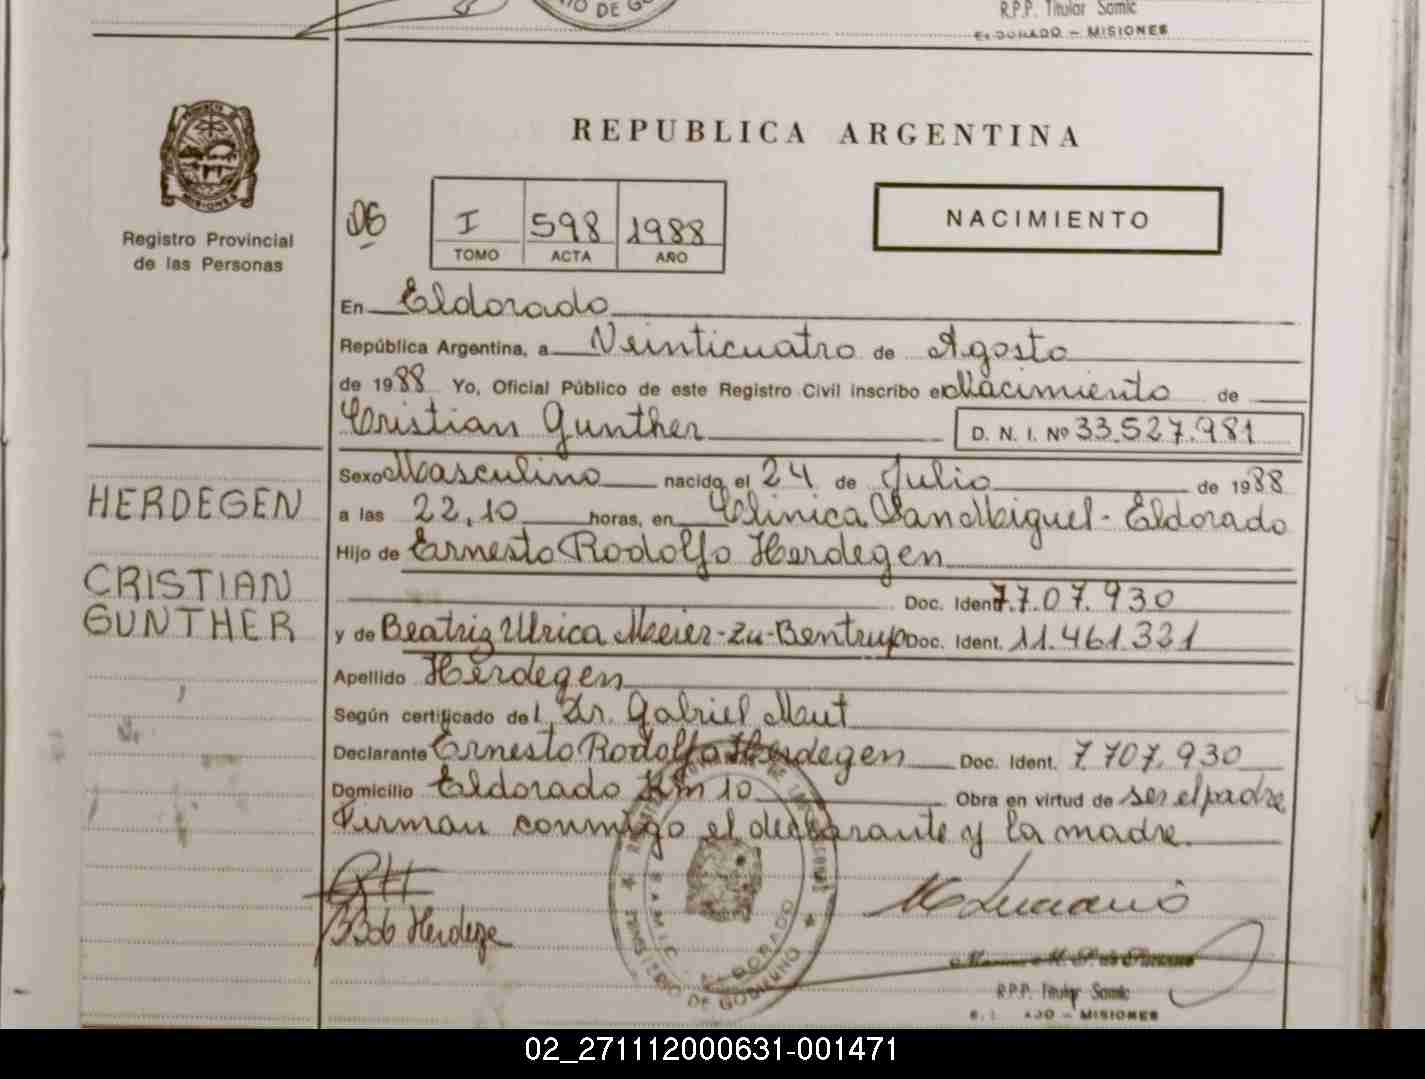 R.P.P. Titular Samic
ELDORADO - MISIONES
MISIONES
Registro Provincial
de las Personas
REPUBLICA ARGENTINA
06
I 598 1988
TOMO ACTA AÑO
NACIMIENTO
En Eldorado
República Argentina, a Veinticuatro de Agosto
de 1988 Yo, Oficial Público de este Registro Civil inscribo el Nacimiento de
Cristian Gunther D. N. I. Nº 33.527.981
Sexo Masculino nacido el 24 de Julio de 1988
a las 22,10 horas, en Clinica San Miguel - Eldorado
Hijo de Ernesto Rodolfo Herdegen
Doc. Ident. 7.707.930
y de Beatriz Ulrica Meier-zu-Bentrup Doc. Ident. 11.461.331
Apellido Herdegen
Según certificado del Dr. Gabriel Maut
Declarante Ernesto Rodolfo Herdegen Doc. Ident. 7.707.930
Domicilio Eldorado Km 10 Obra en virtud de ser el padre
Firman conmigo el declarante y la madre.
HERDEGEN
CRISTIAN
GUNTHER
ELDORADO
MINISTERIO DE GOBIERNO
R.P.P. Titular Samic
MISIONES
02_271112000631-001471